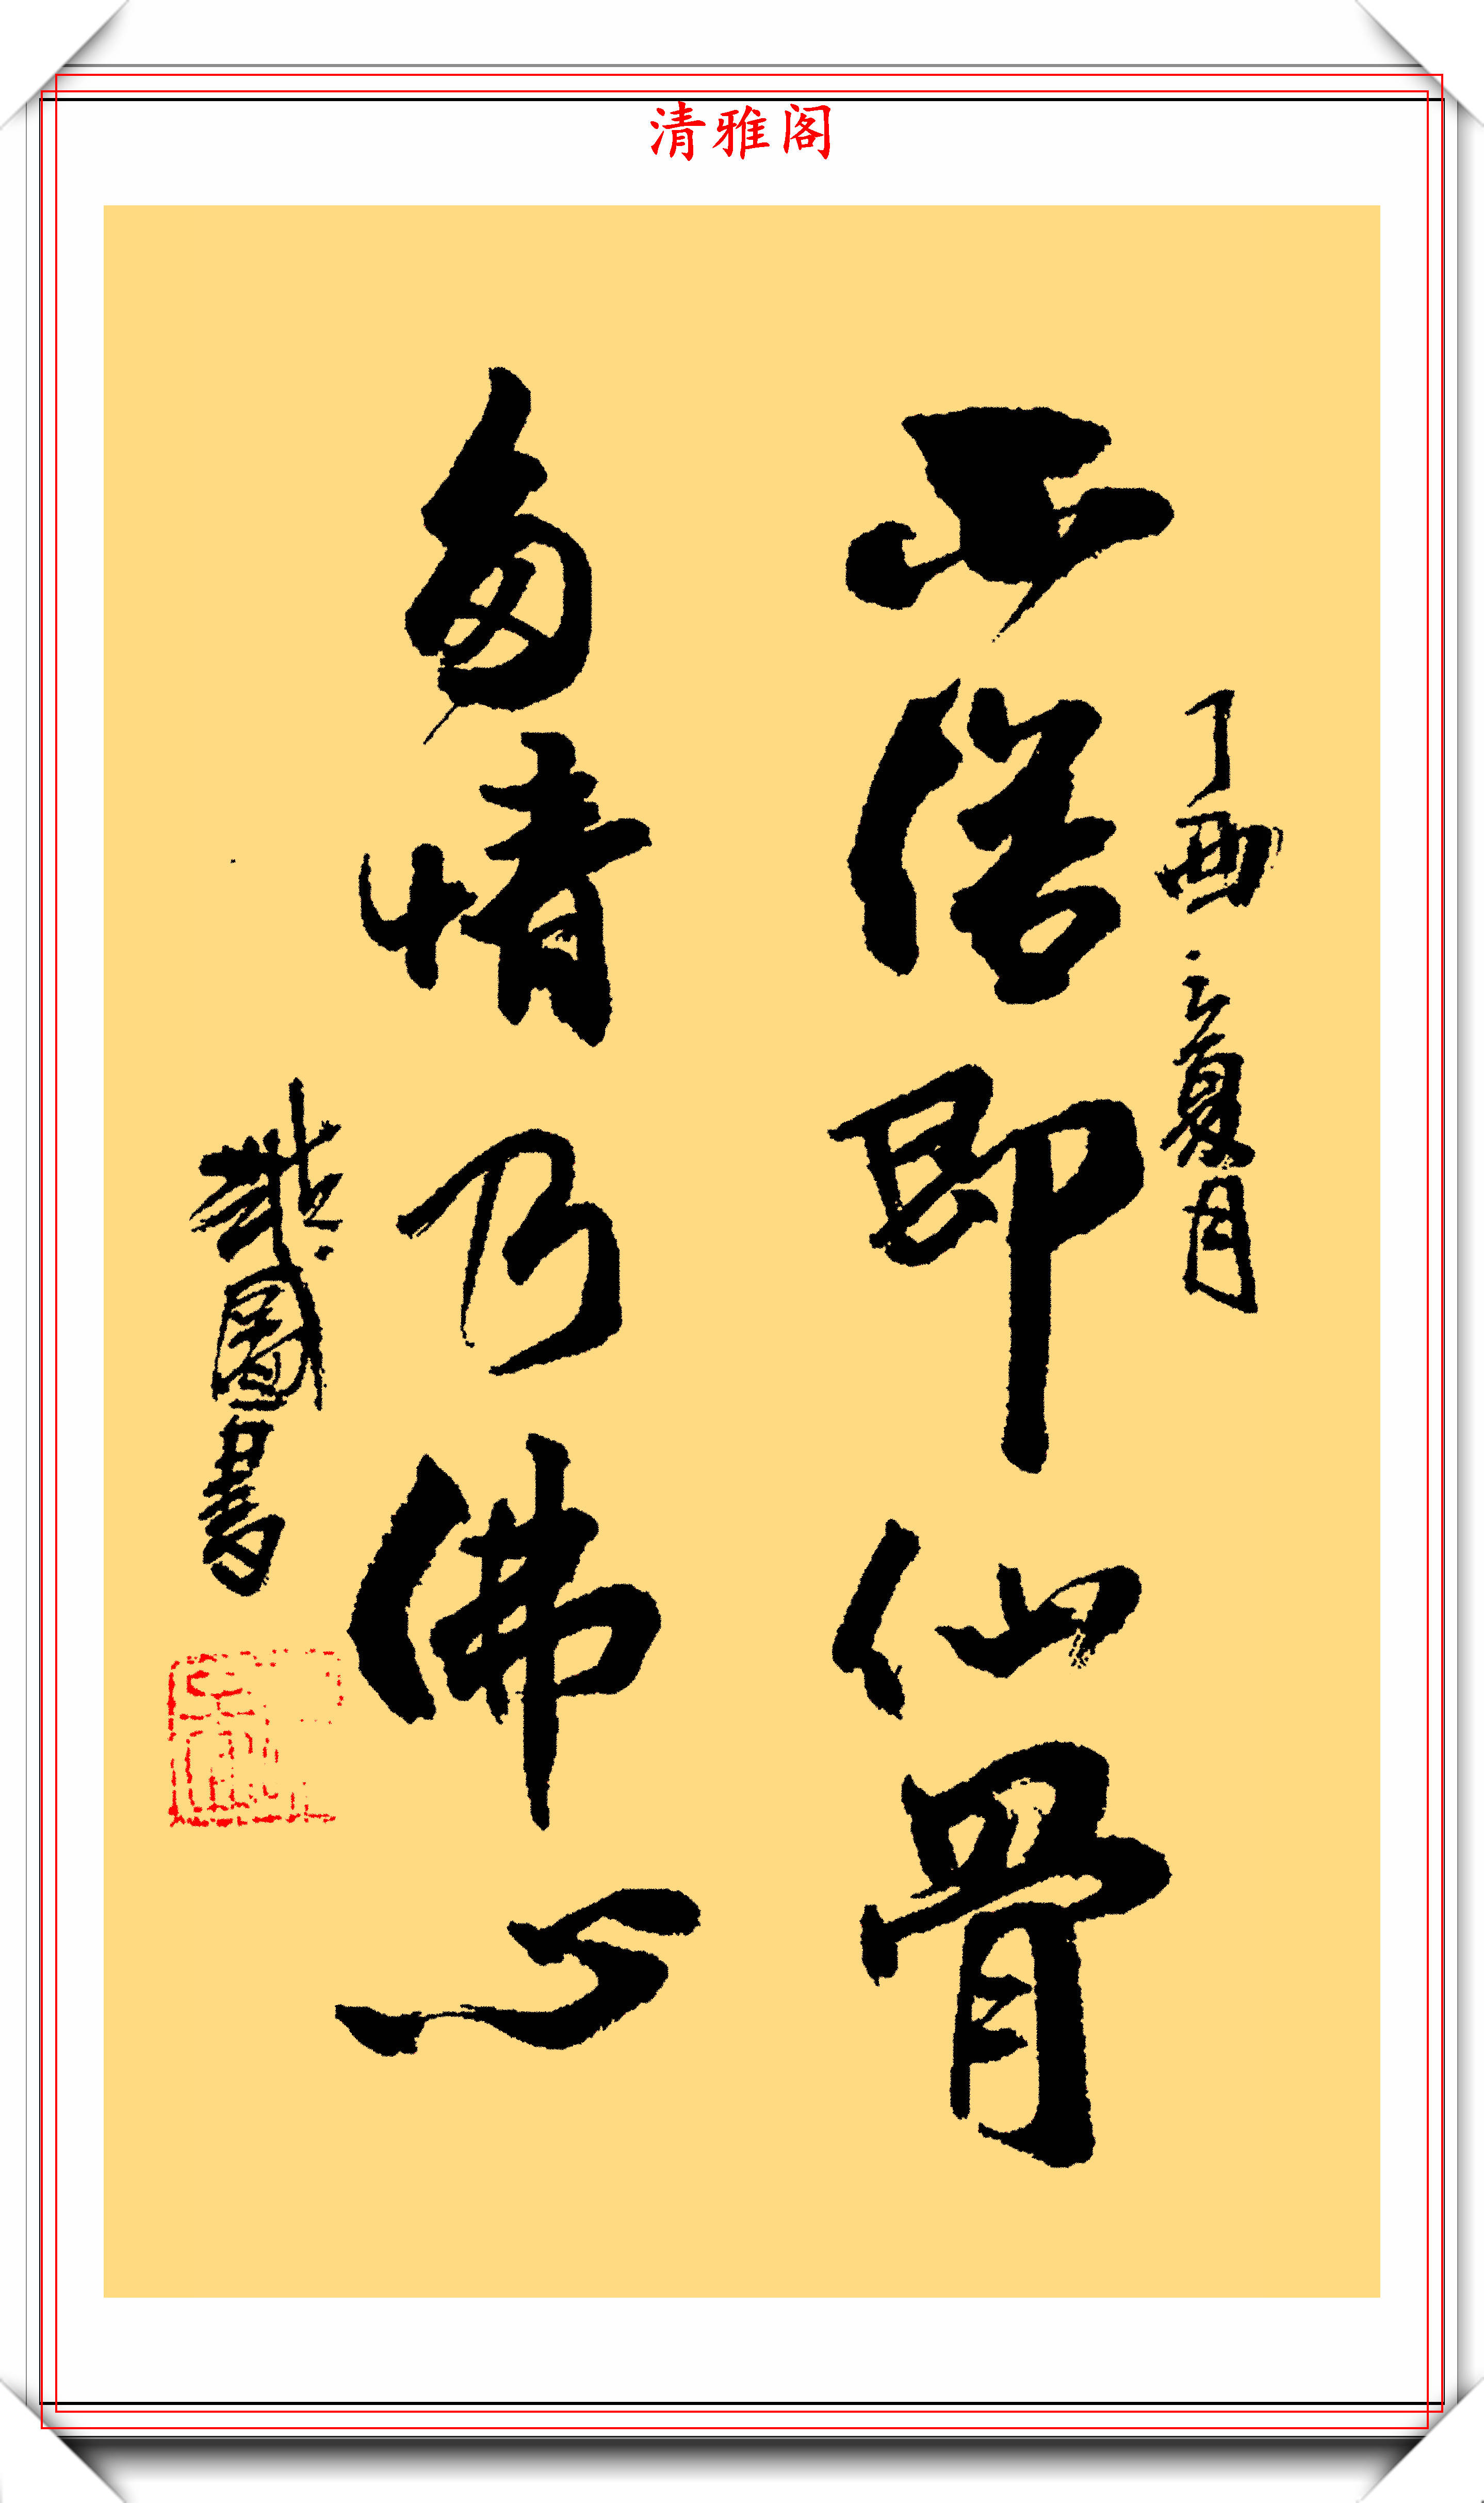 清雅阁
丁酉夏月
不俗即仙骨
多情乃佛心
國書